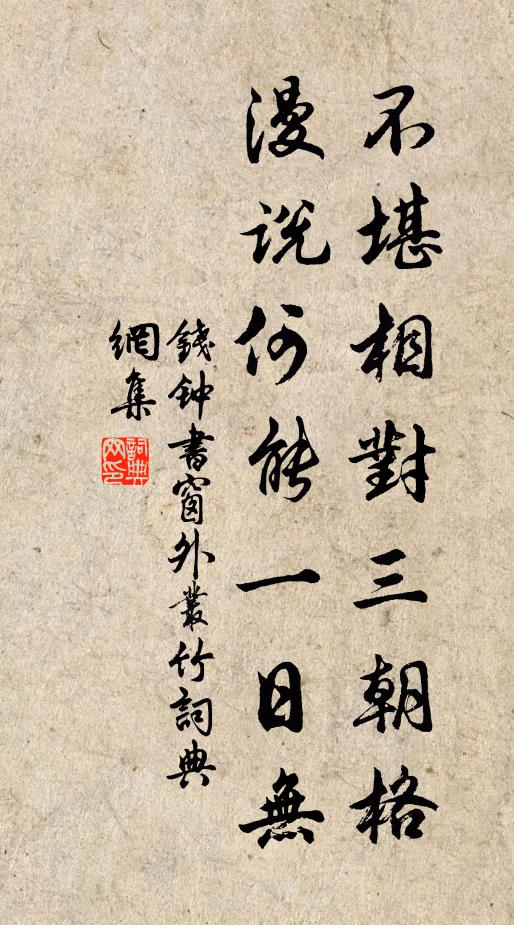 不堪相對三朝格
漫説何能一日無
錢鈡書窗外叢竹詞典
網集
詞典網印